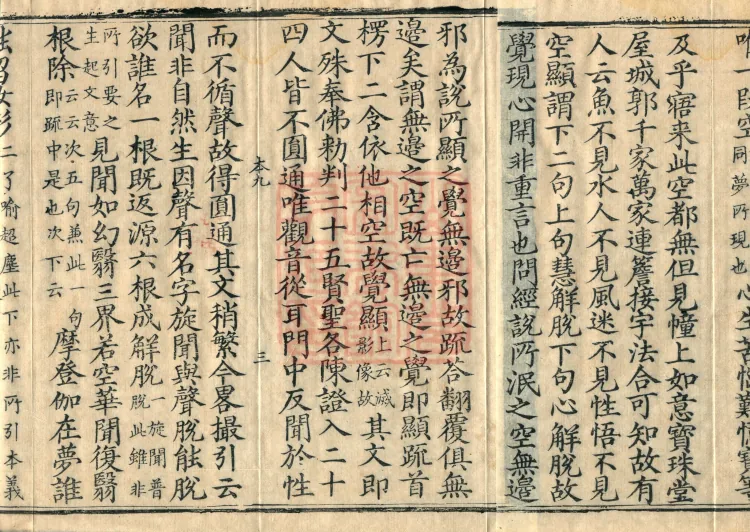 空同夢所現也心生苦惱
及乎寤来此空都無但見幢上如意寶珠堂
屋城郭千家萬家連簷接宇法合可知故有
人云魚不見水人不見風迷不見性悟不見
空顯謂下二句上句慧解脫下句心解脫故
覺現心開非重言也問經說所泯之空無邊
邪為說所顯之覺無邊邪故疏答翻覆俱無
邊矣謂無邊之空既亡無邊之覺即顯疏首
楞下二含依他相空故覺顯上云滅影像故其文即
文殊奉佛勑判二十五賢聖各陳證入二十
四人皆不圓通唯觀音從耳門中反聞於性
本九 三
而不循聲故得圓通其文稍繁今畧撮引云
聞非自然生因聲有名字旋聞與聲脫能脫
欲誰名一根既返源六根成解脫一旋聞普脫此雖非
所引要之生起文意見聞如幻翳三界若空華聞復翳
根除云云次五句兼此一句即疏中是也次下云摩登伽在夢誰
二了喻超塵此下亦非所引本義